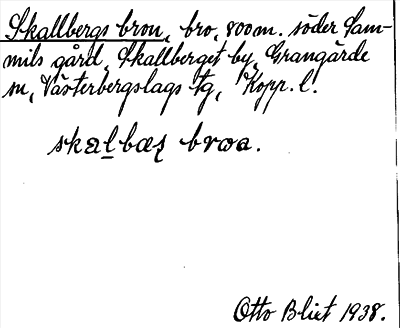 Skallbergs bron, bro, 800 m. söder Sam-
mils gård, Skallberget by, Grangärde
sn, Västerbergslags tg, Kopp. l.
skalbæʂ broa.
Otto Blixt 1938.